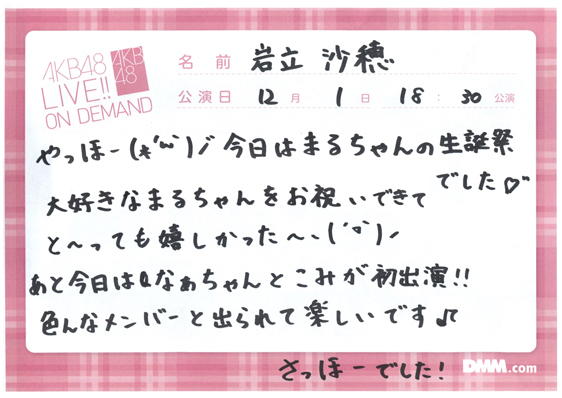 AKB48
LIVE!!
ON DEMAND
AKB
48
名前 岩立 沙穂
公演日 12月 1日 18:30公演
やっほー(*'ω`)ノ 今日はまるちゃんの生誕祭
でした♡
大好きなまるちゃんをお祝いできて
と〜っても嬉しかった〜ヽ(´o`)ノ
あと今日はQなぁちゃんとこみが初出演!!
色んなメンバーと出られて楽しいです♫
さっほーでした!
DMM.com